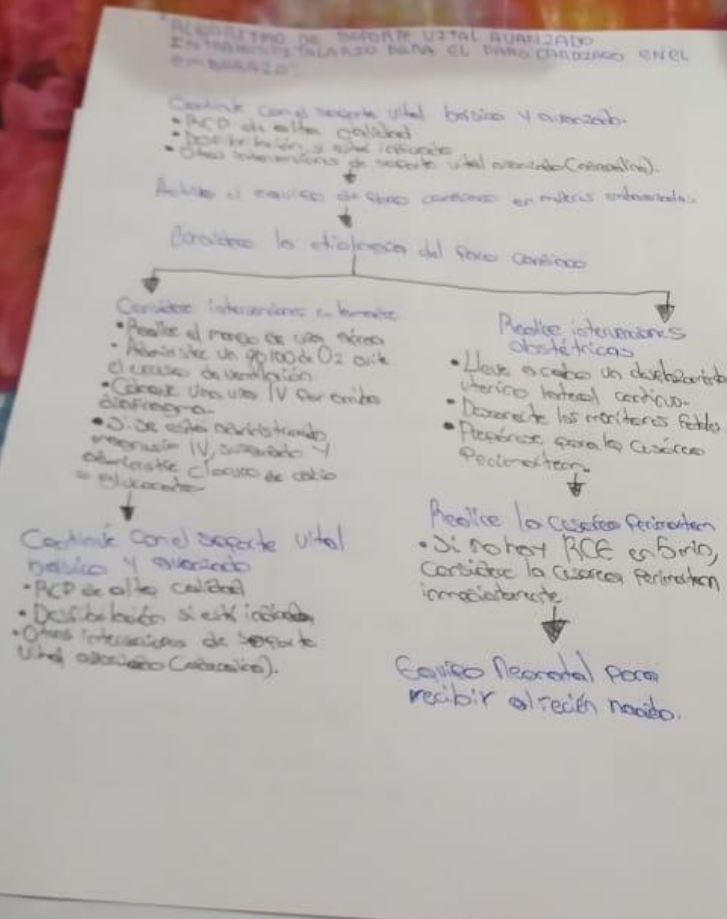 ALGORITMO DE SOPORTE VITAL AVANZADO
INTRAHOSPITALARIO PARA EL PARO CARDIACO EN EL
EMBARAZO.
Continúe con el soporte vital básico y avanzado.
• RCP de alta calidad
• Desfibrilación si está indicada
• Otras intervenciones de soporte vital avanzado (epinefrina).
Active el equipo de paro cardiaco en mujeres embarazadas
Considere la etiología del paro cardiaco
Considere intervenciones maternas
• Realice el manejo de vía aérea
• Administre un 100% de O2 evite
el exceso de ventilación
• Coloque una vía IV por arriba
diafragma.
• Si se está administrando
magnesio IV, suspenda y
administre cloruro de calcio
o gluconato
Continúe con el soporte vital
básico y avanzado
• RCP de alta calidad
• Desfibrilación si está indicada
• Otras intervenciones de soporte
vital avanzado
Realice intervenciones
obstétricas
• Lleve a cabo un desplazamiento
uterino lateral continuo.
• Desconecte los monitores fetales.
• Prepárese para la cesárea
perimortem.
Realice la cesárea perimortem
• Si no hay RCE en 5 min,
considere la cesárea perimortem
inmediatamente
Equipo Neonatal para
recibir al recién nacido.